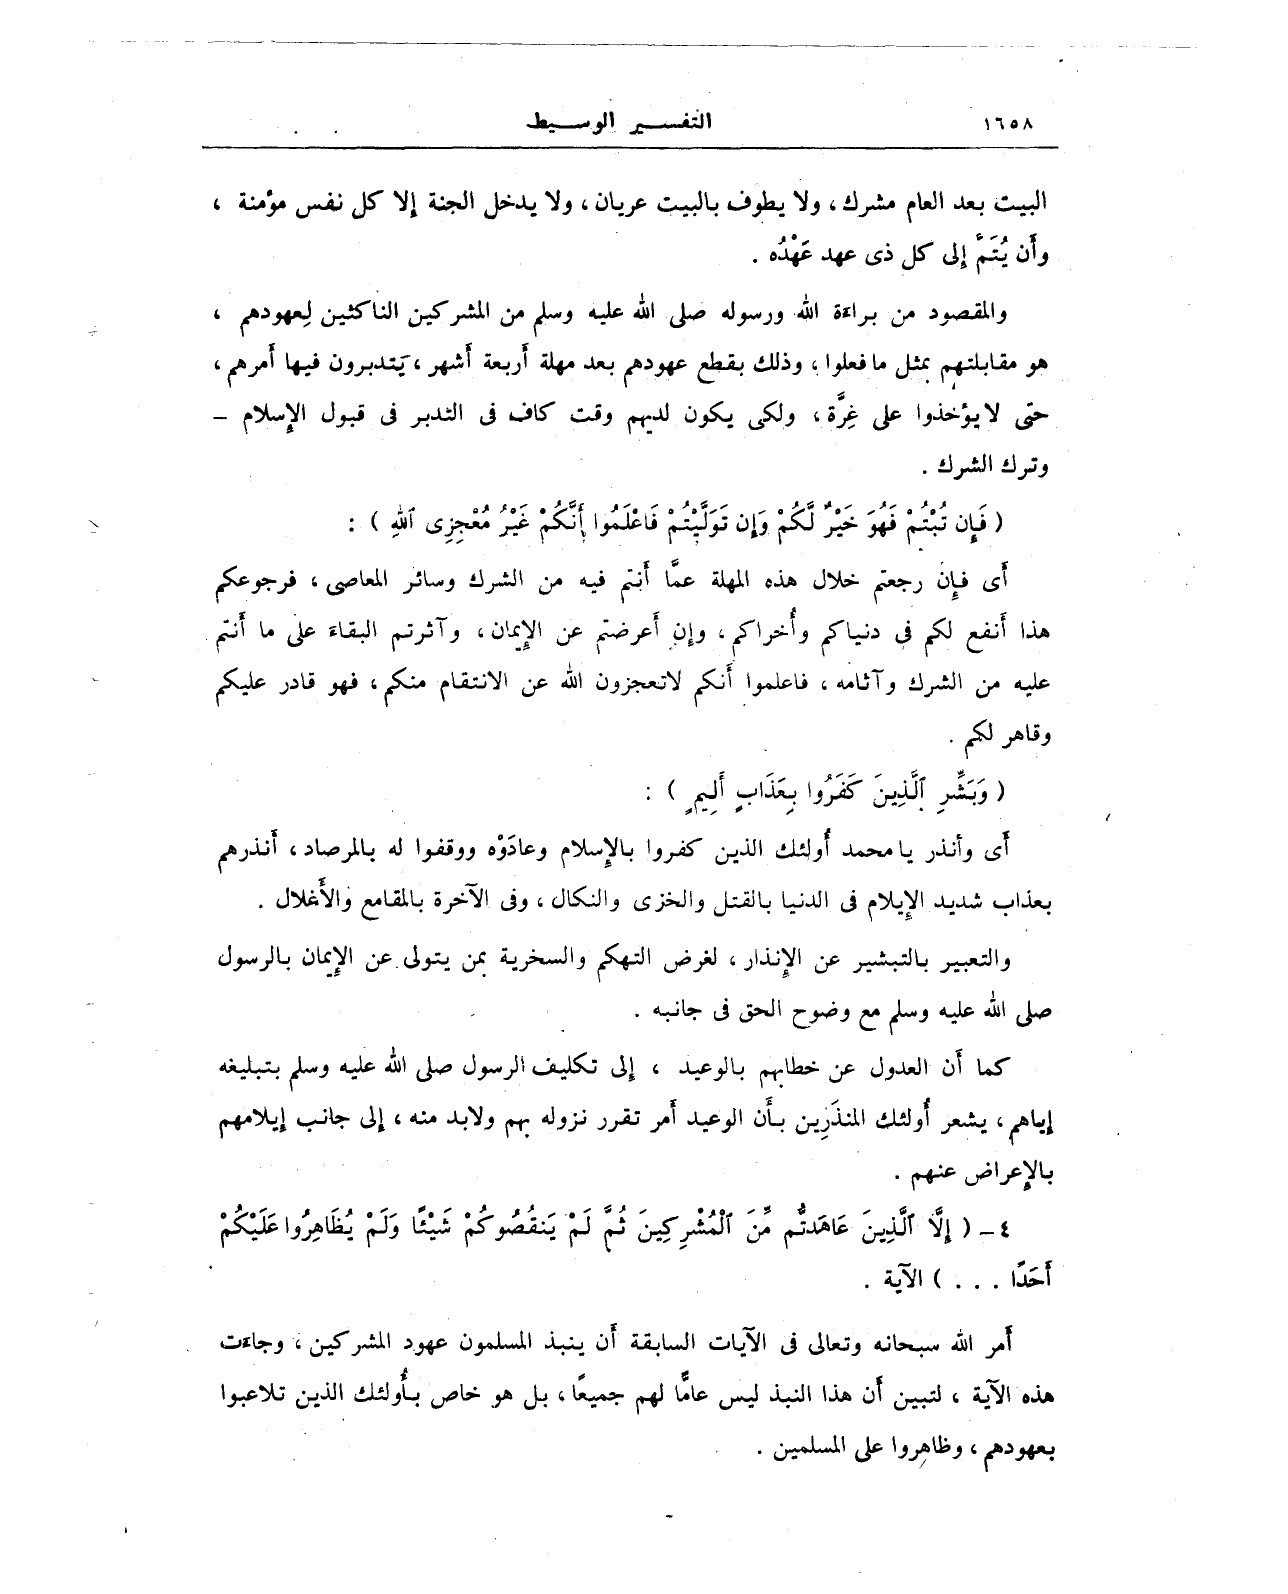 ١٦٥٨ التفسير الوسيط
البيت بعد العام مشرك، ولا يطوف بالبيت عريان، ولا يدخل الجنة إلا كل نفس مؤمنة ،
وأن يُتَمَّ إلى كل ذى عهد عَهْدُه .
والمقصود من براءة الله ورسوله صلى الله عليه وسلم من المشركين الناكثين لِعهودهم ،
هو مقابلتهم بمثل ما فعلوا، وذلك بقطع عهودهم بعد مهلة أربعة أشهر، يَتدبرون فيها أمرهم،
حتى لا يؤخذوا على غِرَّة، ولكى يكون لديهم وقت كاف فى التدبر فى قبول الإسلام –
وترك الشرك .
( فَإِن تُبْتُمْ فَهُوَ خَيْرٌ لَّكُمْ وَإِن تَوَلَّيْتُمْ فَاعْلَمُوا أَنَّكُمْ غَيْرُ مُعْجِزِى ٱللهِ ) :
أى فإن رجعتم خلال هذه المهلة عمَّا أنتم فيه من الشرك وسائر المعاصى، فرجوعكم
هذا أنفع لكم فى دنياكم وأُخراكم، وإن أعرضتم عن الإيمان، وآثرتم البقاء على ما أنتم
عليه من الشرك وآثامه، فاعلموا أنكم لاتعجزون الله عن الانتقام منكم، فهو قادر عليكم
وقاهر لكم .
( وَبَشِّرِ ٱلَّذِينَ كَفَرُوا بِعَذَابٍ أَلِيمٍ ) :
أى وأنذر يا محمد أُولئك الذين كفروا بالإسلام وعادَوْه ووقفوا له بالمرصاد، أنذرهم
بعذاب شديد الإيلام فى الدنيا بالقتل والخزى والنكال، وفى الآخرة بالمقامع والأغلال .
والتعبير بالتبشير عن الإنذار، لغرض التهكم والسخرية بمن يتولى عن الإيمان بالرسول
صلى الله عليه وسلم مع وضوح الحق فى جانبه .
كما أن العدول عن خطابهم بالوعيد ، إلى تكليف الرسول صلى الله عليه وسلم بتبليغه
إياهم، يشعر أُولئك المنذَرِين بأن الوعيد أمر تقرر نزوله بهم ولابد منه، إلى جانب إيلامهم
بالإعراض عنهم .
٤ – ( إِلَّا ٱلَّذِينَ عَاهَدتُّم مِّنَ ٱلْمُشْرِكِينَ ثُمَّ لَمْ يَنقُصُوكُمْ شَيْئًا وَلَمْ يُظَاهِرُوا عَلَيْكُمْ
أَحَدًا . . . ) الآية .
أمر الله سبحانه وتعالى فى الآيات السابقة أن ينبذ المسلمون عهود المشركين، وجاءت
هذه الآية ، لتبين أن هذا النبذ ليس عامًّا لهم جميعًا، بل هو خاص بأُولئك الذين تلاعبوا
بعهودهم، وظاهروا على المسلمين .